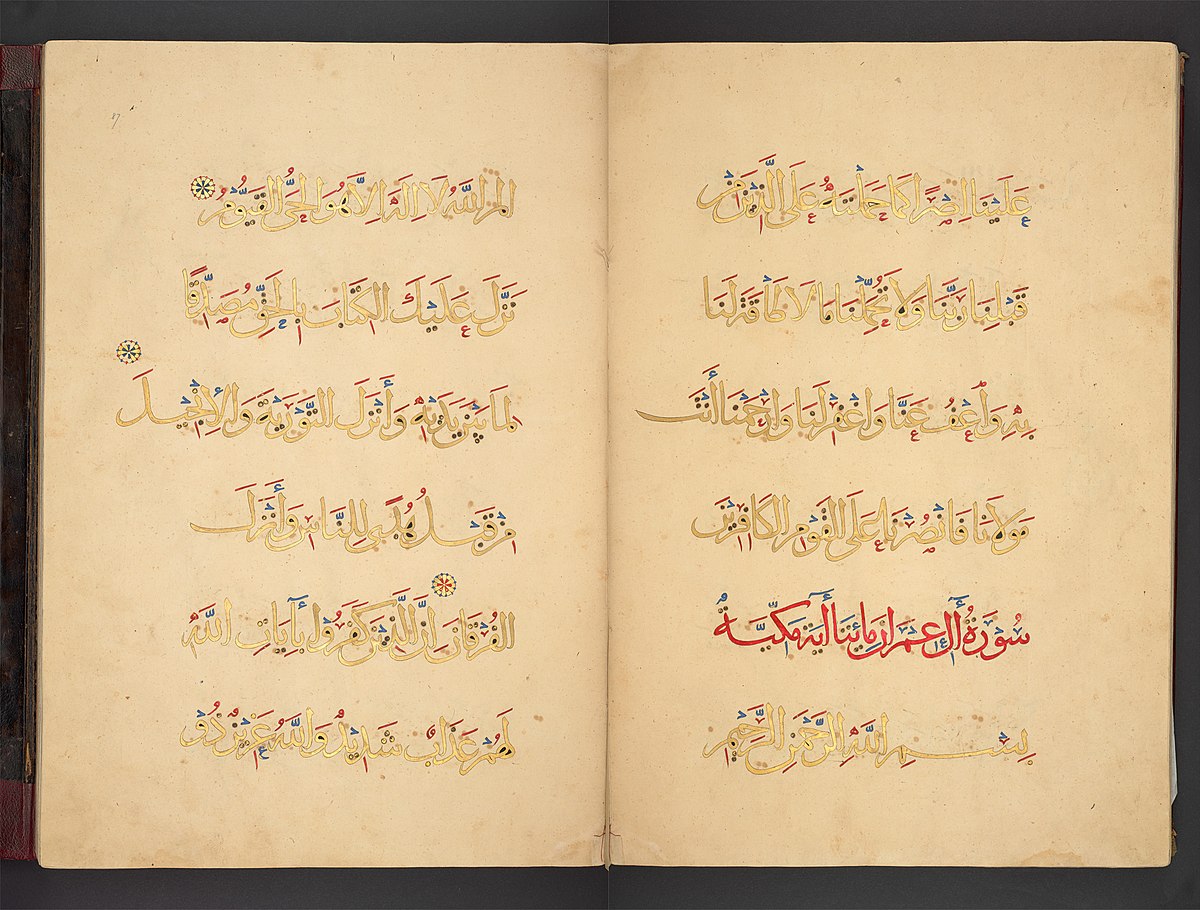 عَلَيْنَا إِصْرًا كَمَا حَمَلْتَهُ عَلَى الَّذِينَ مِنْ
قَبْلِنَا رَبَّنَا وَلَا تُحَمِّلْنَا مَا لَا طَاقَةَ لَنَا
بِهِ وَاعْفُ عَنَّا وَاغْفِرْ لَنَا وَارْحَمْنَا أَنْتَ
مَوْلَانَا فَانْصُرْنَا عَلَى الْقَوْمِ الْكَافِرِينَ
سُورَةُ أٓلِ عِمْرَانَ مِائَتَا أٓيَة مَكِّيَّةٌ
بِسْمِ اللَّهِ الرَّحْمَنِ الرَّحِيمِ
الم اللَّهُ لَا إِلَهَ إِلَّا هُوَ الْحَيُّ الْقَيُّومُ
نَزَّلَ عَلَيْكَ الْكِتَابَ بِالْحَقِّ مُصَدِّقًا
لِمَا بَيْنَ يَدَيْهِ وَأَنْزَلَ التَّوْرَيةَ وَالْإِنْجِيلَ
مِنْ قَبْلُ هُدًى لِلنَّاسِ وَأَنْزَلَ
الْفُرْقَانَ إِنَّ الَّذِينَ كَفَرُوا بِأٓيَاتِ اللَّهِ
لَهُمْ عَذَابٌ شَدِيدٌ وَاللَّهُ عَزِيزٌ ذُو